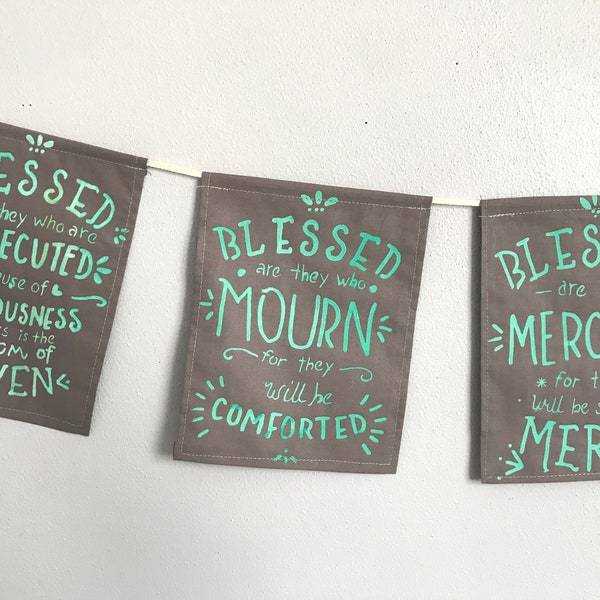 ESSED
hey who are
ECUTED
ause of
OUSNESS
s is the
OM of
VEN
BLESSED
are they who
MOURN
for they
will be
COMFORTED
BLESS
are
MERC
for t
will be s
MER